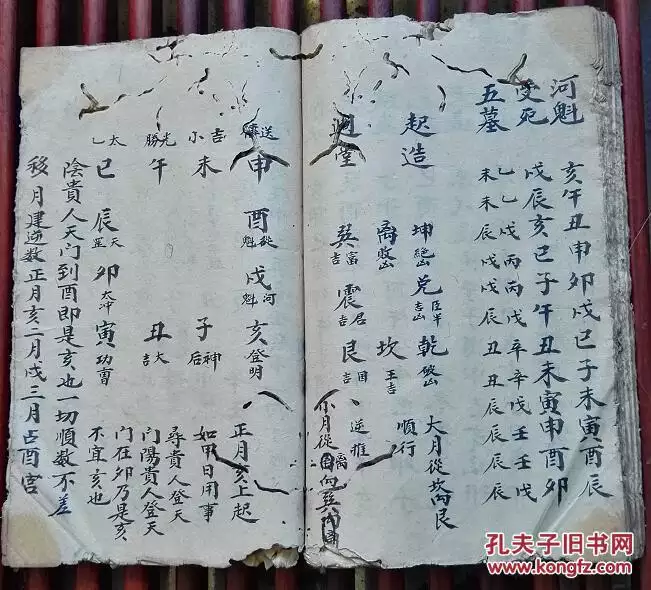 河魁 亥午丑申卯戌巳子未寅酉辰
受死 戌辰亥巳子午丑未寅申酉卯
五墓 乙乙戊丙丙戊辛辛戊壬壬戊
未未辰戌戌辰丑丑辰辰辰辰
起造 坤 兌吉 乾 大月從坎向艮
離 坎 順行
周堂 巽富吉 震居吉 艮吉 逆推
小月從離向巽
送 申 酉從魁 戌河魁 亥登明 正月亥上起
小吉 未 子神后 如甲日用事
勝光 午 丑大吉 尋貴人登天
太乙 巳 辰天罡 卯太冲 寅功曹 門陽貴人登天
門在卯乃是亥
不宜亥也
陰貴人天門到酉即是亥也一切順数不差
移月建逆数正月亥二月戌三月占酉宮
孔夫子旧书网
www.kongfz.com